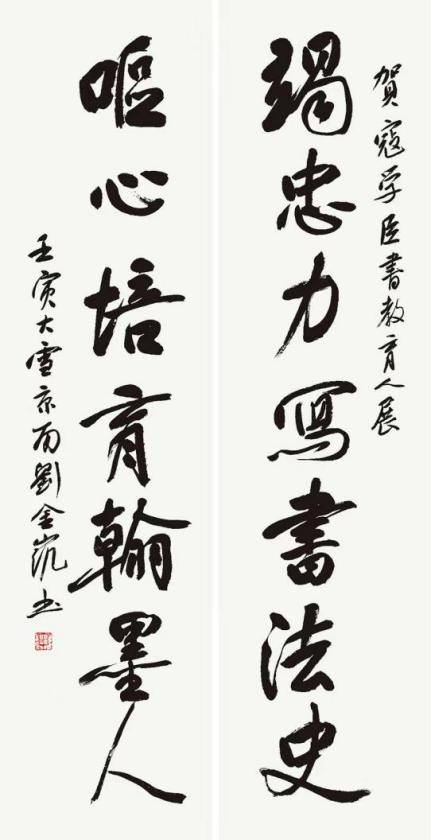 賀寇学臣書教育人展
竭忠力寫書法史
嘔心培育翰墨人
壬寅大雪京南劉金凱书